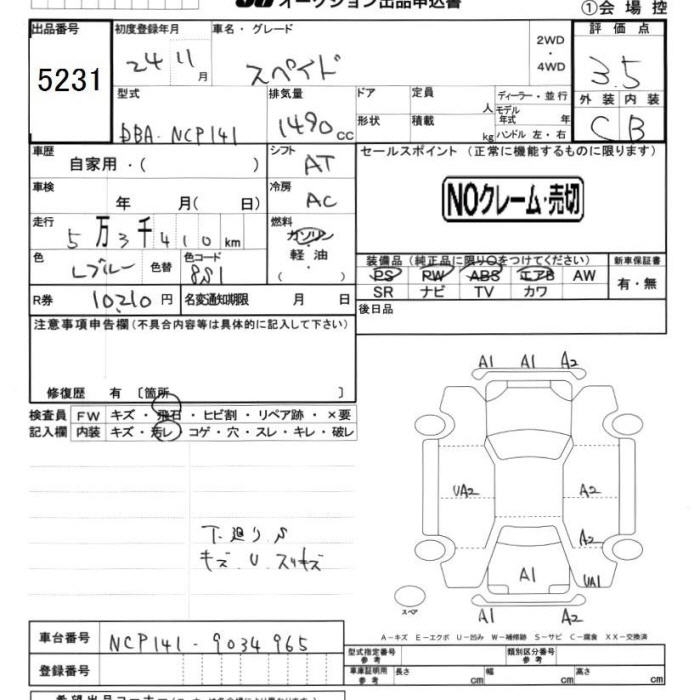 オークション出品申込書
①会場控
出品番号 初度登録年月 車名・グレード 2WD・4WD 評価点
5231 24 11月 スペイド 3.5
外装 内装
C B
型式 排気量 ドア 定員 人 ディーラー・並行
DBA-NCP141 1490cc 形状 積載 kg モデル年式 年
ハンドル 左・右
車歴 シフト セールスポイント (正常に機能するものに限ります)
自家用・( ) AT
NOクレーム・売切
車検 冷房
年 月( 日) AC
走行 燃料
5万3千410km ガソリン
軽油
・( )
色 色替 色コード
Lブルー 8S1
装備品(純正品に限り○をつけてください) 新車保証書
PS PW ABS エアB AW 有・無
SR ナビ TV カワ
R券 10210円 名変通知期限 月 日
後日品
注意事項申告欄(不具合内容等は具体的に記入して下さい)
修復歴 有 〔箇所 〕
検査員 FW キズ・飛石・ヒビ割・リペア跡・×要
記入欄 内装 キズ・汚レ・コゲ・穴・スレ・キレ・破レ
下廻り.S
キズ.U.スリキズ
A1 A1 A2
UA2 A2
A2
A1 UA1
A1 A2
スペア
A-キズ E-エクボ U-凹み W-補修跡 S-サビ C-腐食 XX-交換済
車台番号 NCP141-9034965
型式指定番号 参考 類別区分番号 参考
登録番号
車庫証明用 参考 長さ cm 幅 cm 高さ cm